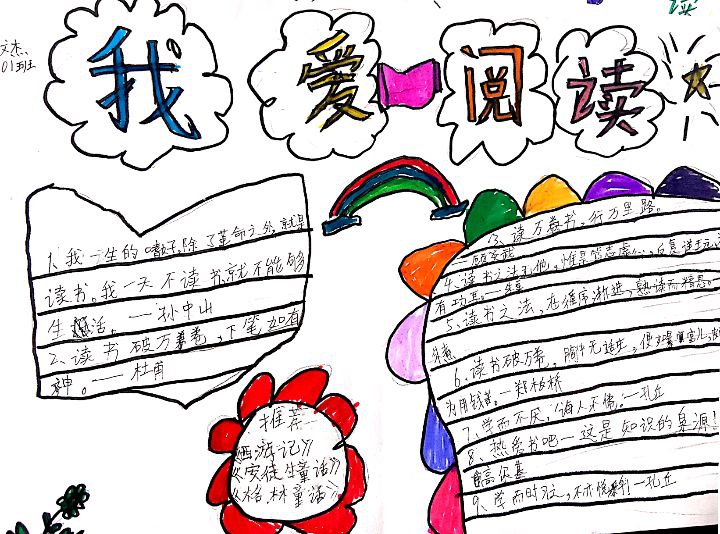 文杰
01班
我爱阅读
读
1、我一生的嗜好,除了革命之外,就是
读书。我一天不读书,就不能够
生活。——孙中山
2、读书破万卷,下笔如有
神。——杜甫
推荐
《西游记》
《安徒生童话》
《格林童话》
3、读万卷书,行万里路。
4、读书之法无他,惟是笃志虚心,反复详玩,
有功
5、读书之法,在循序渐进,熟读而精思。
朱熹
6、读书破万卷,胸中无适主,便如暴富儿,
为用钱苦。—郑板桥
7、学而不厌,诲人不倦。—孔丘
8、热爱书吧—这是知识的泉源!
高尔基
9、学而时习之,不亦悦乎—孔丘